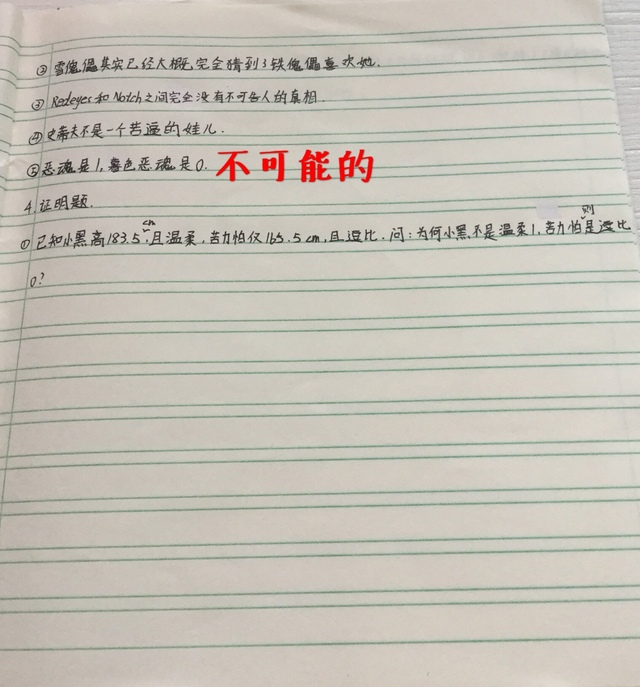 ②雪傀儡其实已经大概完全猜到了铁傀儡喜欢她.
③Redeyes和Notch之间完全没有不可告人的真相.
④史蒂夫不是一个苦逼的娃儿.
⑤恶魂是1,暮色恶魂是0. 不可能的
4.证明题.
①已知小黑高183.5cm,且温柔,苦力怕仅165.5cm,且逗比.问:为何小黑不是温柔1,苦力怕则是逗比
0?